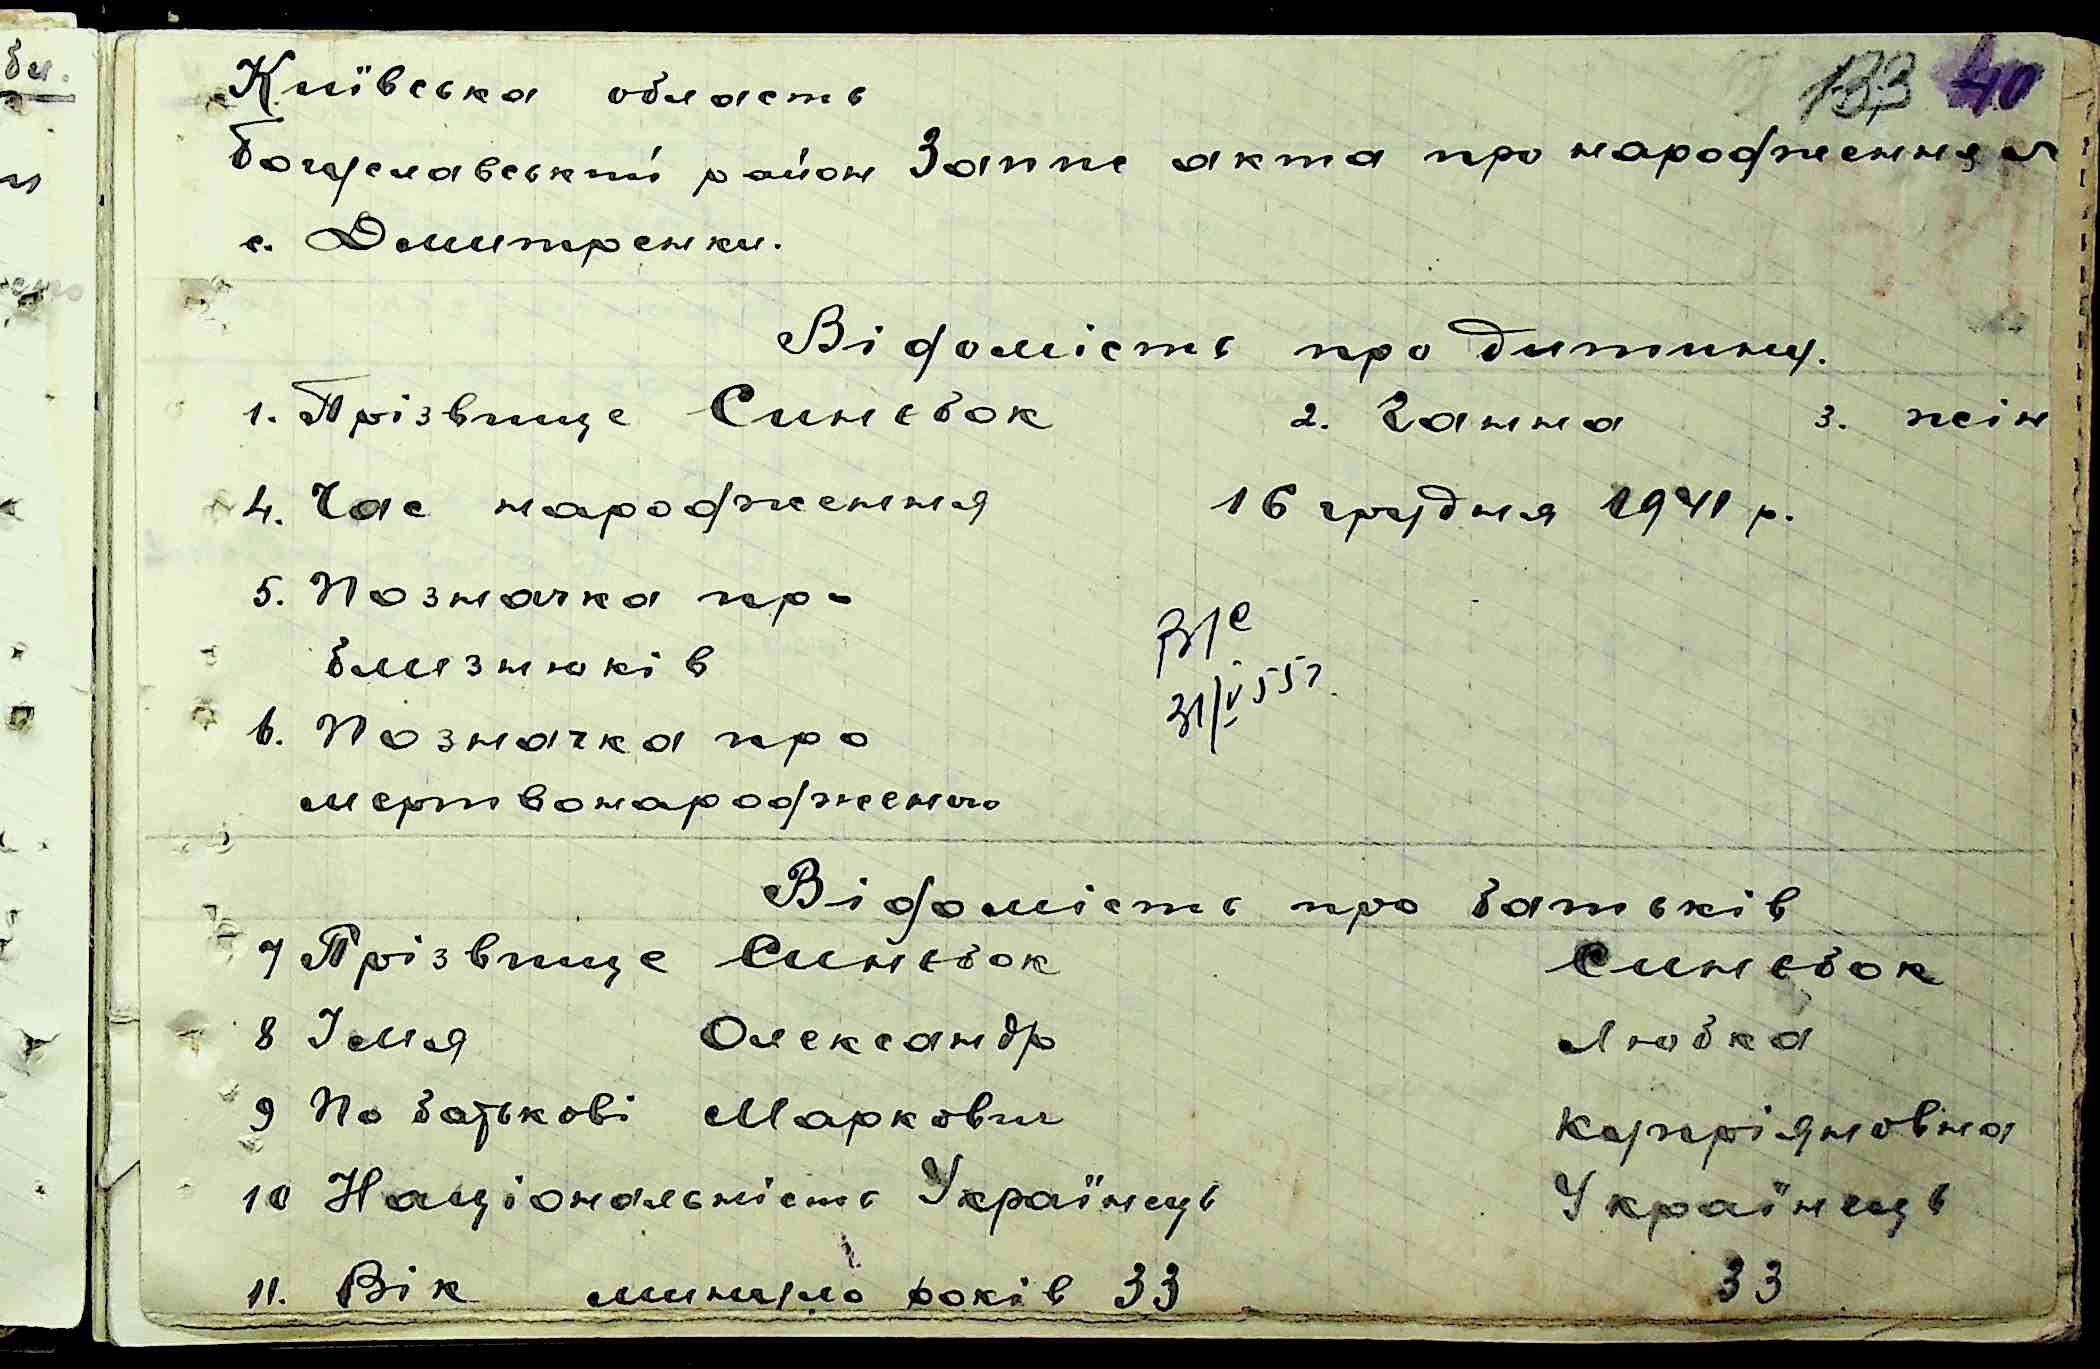 би.
Київська область
133 40
Богуславський район Запис акта про народження
с. Дмитренки.
Відомість про дитину.
1. Прізвище Синєбок 2. Ганна 3. жін
4. Час народження 16 грудня 1941 р.
5. Позначка про
близнюків
6. Позначка про
мертвонародженого
31/V 55г.
Відомість про батьків
7 Прізвище Синєбок Синєбок
8 Імя Олександр Любка
9 По батькові Маркович Купріяновна
10 Національність Українець Українець
11. Вік минуло років 33 33